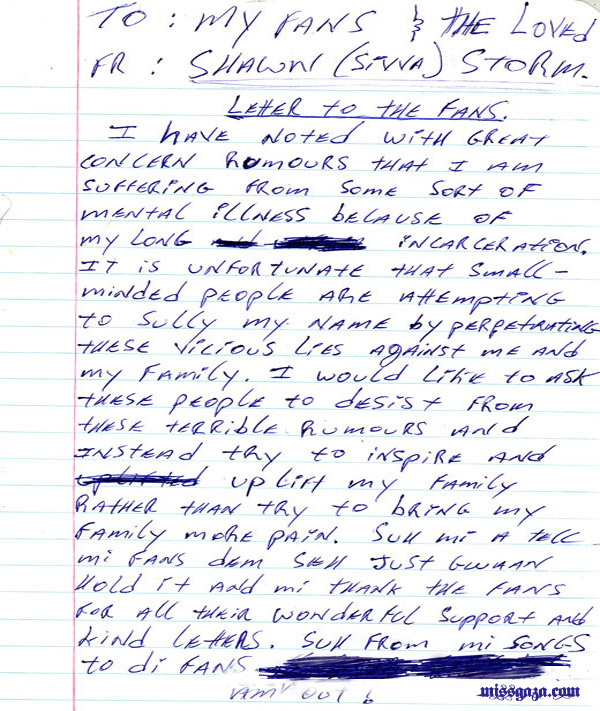 TO : MY FANS & THE LOVED
FR : SHAWN (SIVVA) STORM.
LETTER TO THE FANS.
I HAVE NOTED WITH GREAT
CONCERN RUMOURS THAT I AM
SUFFERING FROM SOME SORT OF
MENTAL ILLNESS BECAUSE OF
MY LONG INCARCERATION.
IT IS UNFORTUNATE THAT SMALL-
MINDED PEOPLE ARE ATTEMPTING
TO SULLY MY NAME BY PERPETRATING
THESE VICIOUS LIES AGAINST ME AND
MY FAMILY. I WOULD LIKE TO ASK
THESE PEOPLE TO DESIST FROM
THESE TERRIBLE RUMOURS AND
INSTEAD TRY TO INSPIRE AND
UPLIFTED UPLIFT MY FAMILY
RATHER THAN TRY TO BRING MY
FAMILY MORE PAIN. SUH MI A TELL
MI FANS DEM SEH JUST GWAAN
HOLD IT AND MI THANK THE FANS
FOR ALL THEIR WONDERFUL SUPPORT AND
KIND LETTERS. SUH FROM MI SONGS
TO DI FANS
OUT
missgaza.com